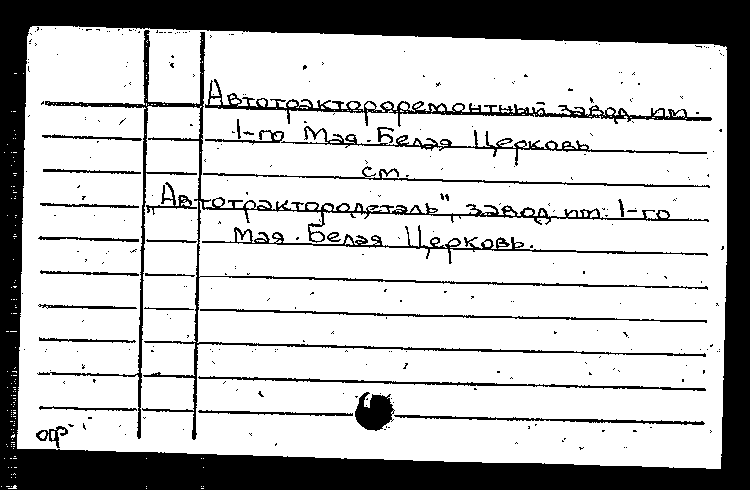 Автотрактороремонтный завод им.
1-го Мая. Белая Церковь
см.
"Автотрактородеталь", завод им. 1-го
Мая. Белая Церковь.
орг